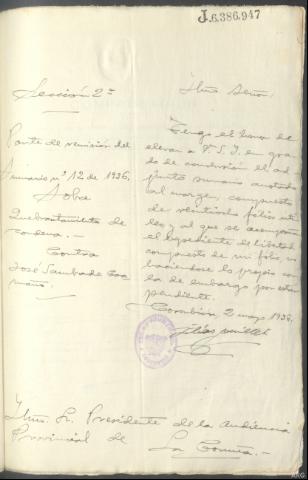 J.6.386.947
Sección 2ª
Parte de remisión del
Sumario nº 12 de 1936.
Sobre
Quebrantamiento de
condena.-
Contra
José Sambade
Iltmo Señor:
Tengo el honor de
elevar a V.S.I. en gra-
do de conclusión el ad-
junto sumario anotado
al margen, compuesto
de veintiseis folios úti-
les y al que se acompaña
el expediente de libertad
compuesto de un folio, no
haciéndose lo propio con
la de embargo por estar
pendiente.
2 mayo 1936.
Iltmo. Sr. Presidente de la Audiencia
Provincial de La Coruña.-
ARG